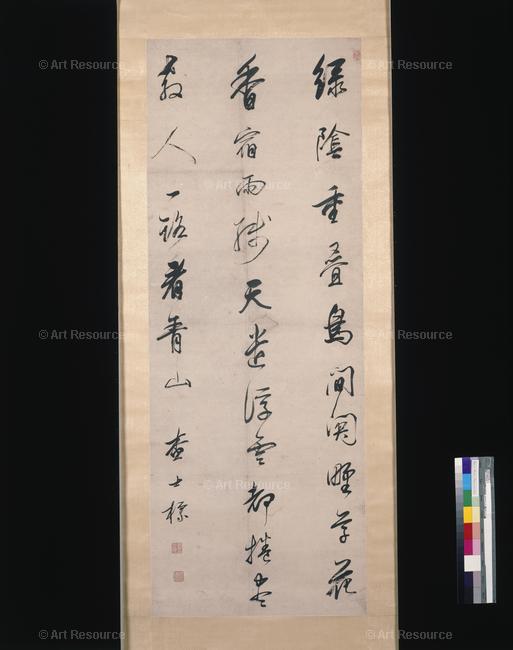 © Art Resource
© Art Resource
© Art Resource
綠陰重疊鳥間關野草花
香宿雨殘天遣浮雲都捲盡
教人一路看青山 查士標
© Art Resource
© Art Resource
© Art Resource
© Art Resource
© Art Resource
© Art Resource
© Art Resource
© Art Resource